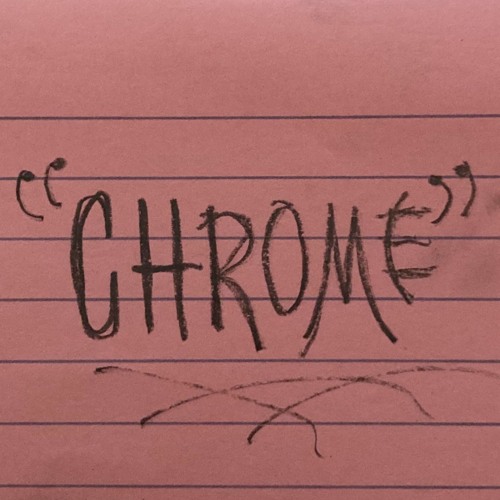 “CHROME”